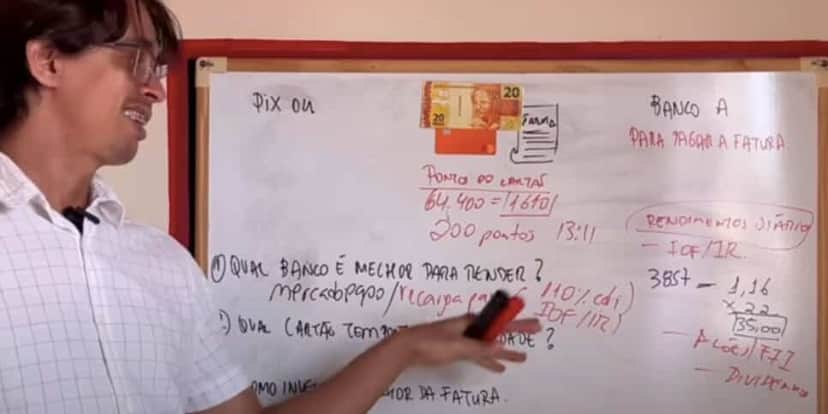 PIX OU
20
20
20
FATURA
PONTO DO CARTÃO
64.400 = 1610
200 pontos 13:11
BANCO A
PARA PAGAR A FATURA.
RENDIMENTOS DIÁRIO
- IOF/IR.
3857 - 1,16
x 22
35,00
- AÇÕES/FII
- DIVIDENDO
① QUAL BANCO É MELHOR PARA RENDER?
mercadopago/recarga pay 110% cdi)
IOF/IR)
QUAL CARTÃO TEM DADE?
OMO INVE OR DA FATURA.